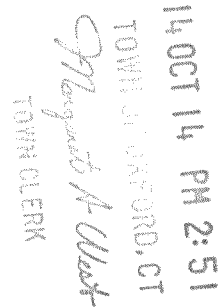 14 OCT 14 PM 2:51
TOWN OF OXFORD, CT
Margaret A West
TOWN CLERK